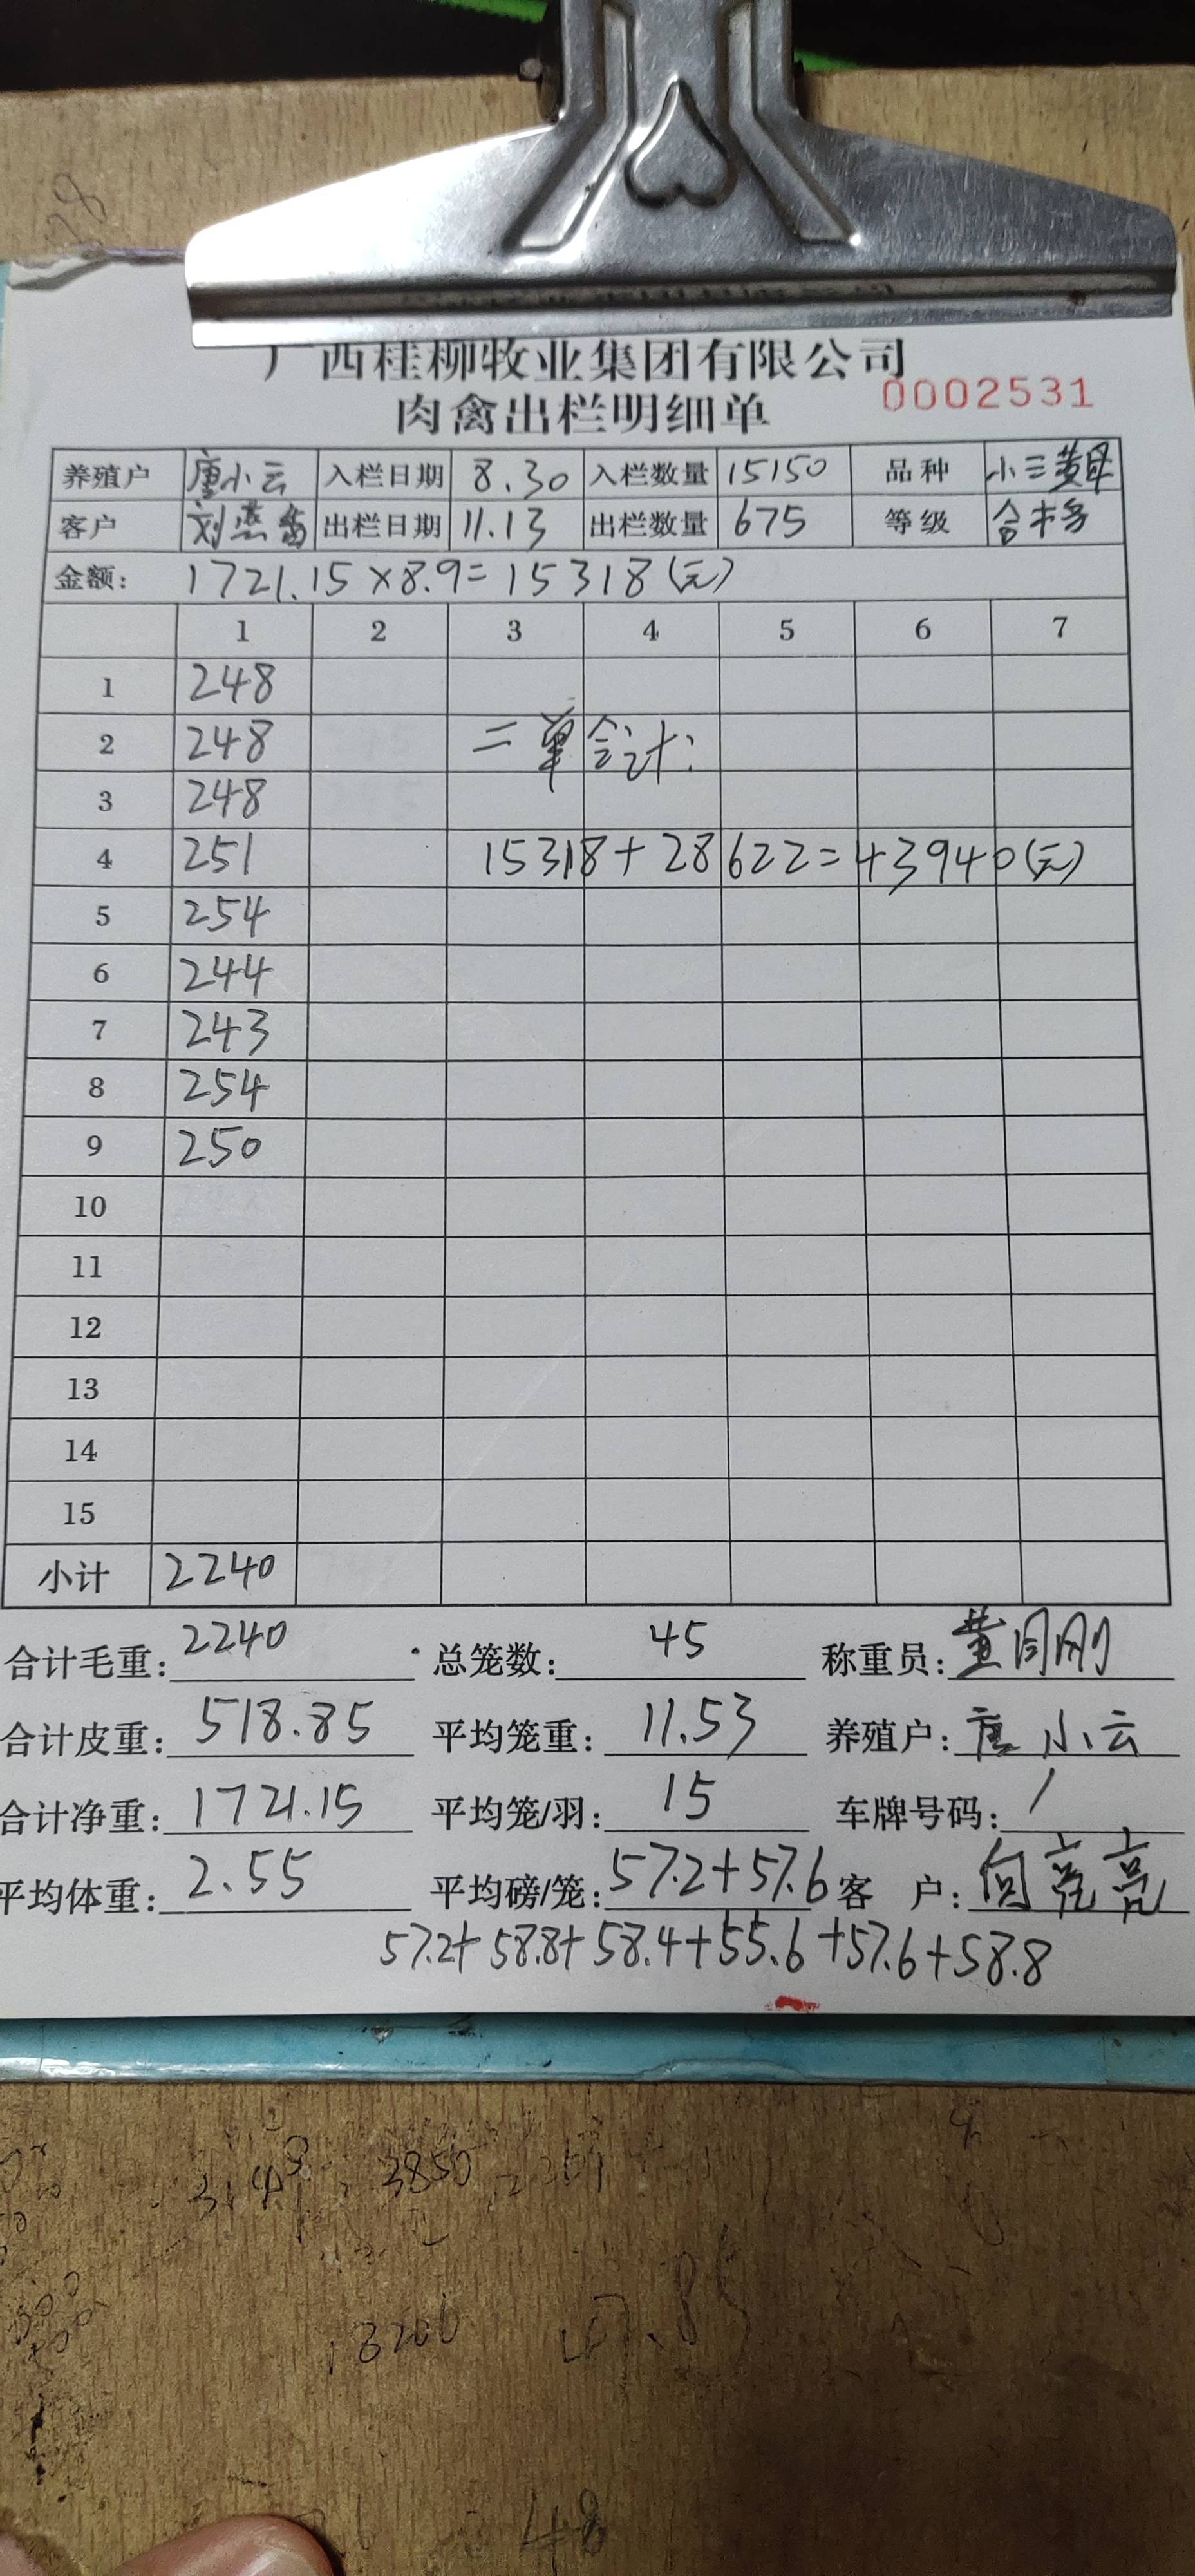 广西桂柳牧业集团有限公司
肉禽出栏明细单 0002531
养殖户 唐小云 入栏日期 8.30 入栏数量 15150 品种 小三黄母
客户 刘燕 出栏日期 11.13 出栏数量 675 等级 合格
金额: 1721.15×8.9=15318(元)
1 2 3 4 5 6 7
1 248
2 248 二单合计:
3 248
4 251 15318+28622=43940(元)
5 254
6 244
7 243
8 254
9 250
10
11
12
13
14
15
小计 2240
合计毛重: 2240 总笼数: 45 称重员: 黄同刚
合计皮重: 518.85 平均笼重: 11.53 养殖户: 唐小云
合计净重: 1721.15 平均笼/羽: 15 车牌号码: /
平均体重: 2.55 平均磅/笼: 57.2+57.6 客 户: 向亮亮
57.2+58.8+58.4+55.6+57.6+58.8
3850
3200
48